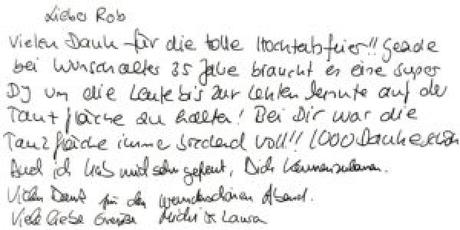 Lieber Rob
Vielen Dank für die tolle Hochzeitsfeier!! Gerade
bei Wunschalter 35 Jahre braucht es eine super
DJ um die Leute bis zur letzten Minute auf der
Tanzfläche zu halten! Bei Dir war die
Tanzfläche immer brechend voll!! 1000 Dank
Auch ich hab mich sehr gefreut, Dich kennenzulernen.
Vielen Dank für den wunderschönen Abend.
Viele liebe Grüsse Michi & Laura